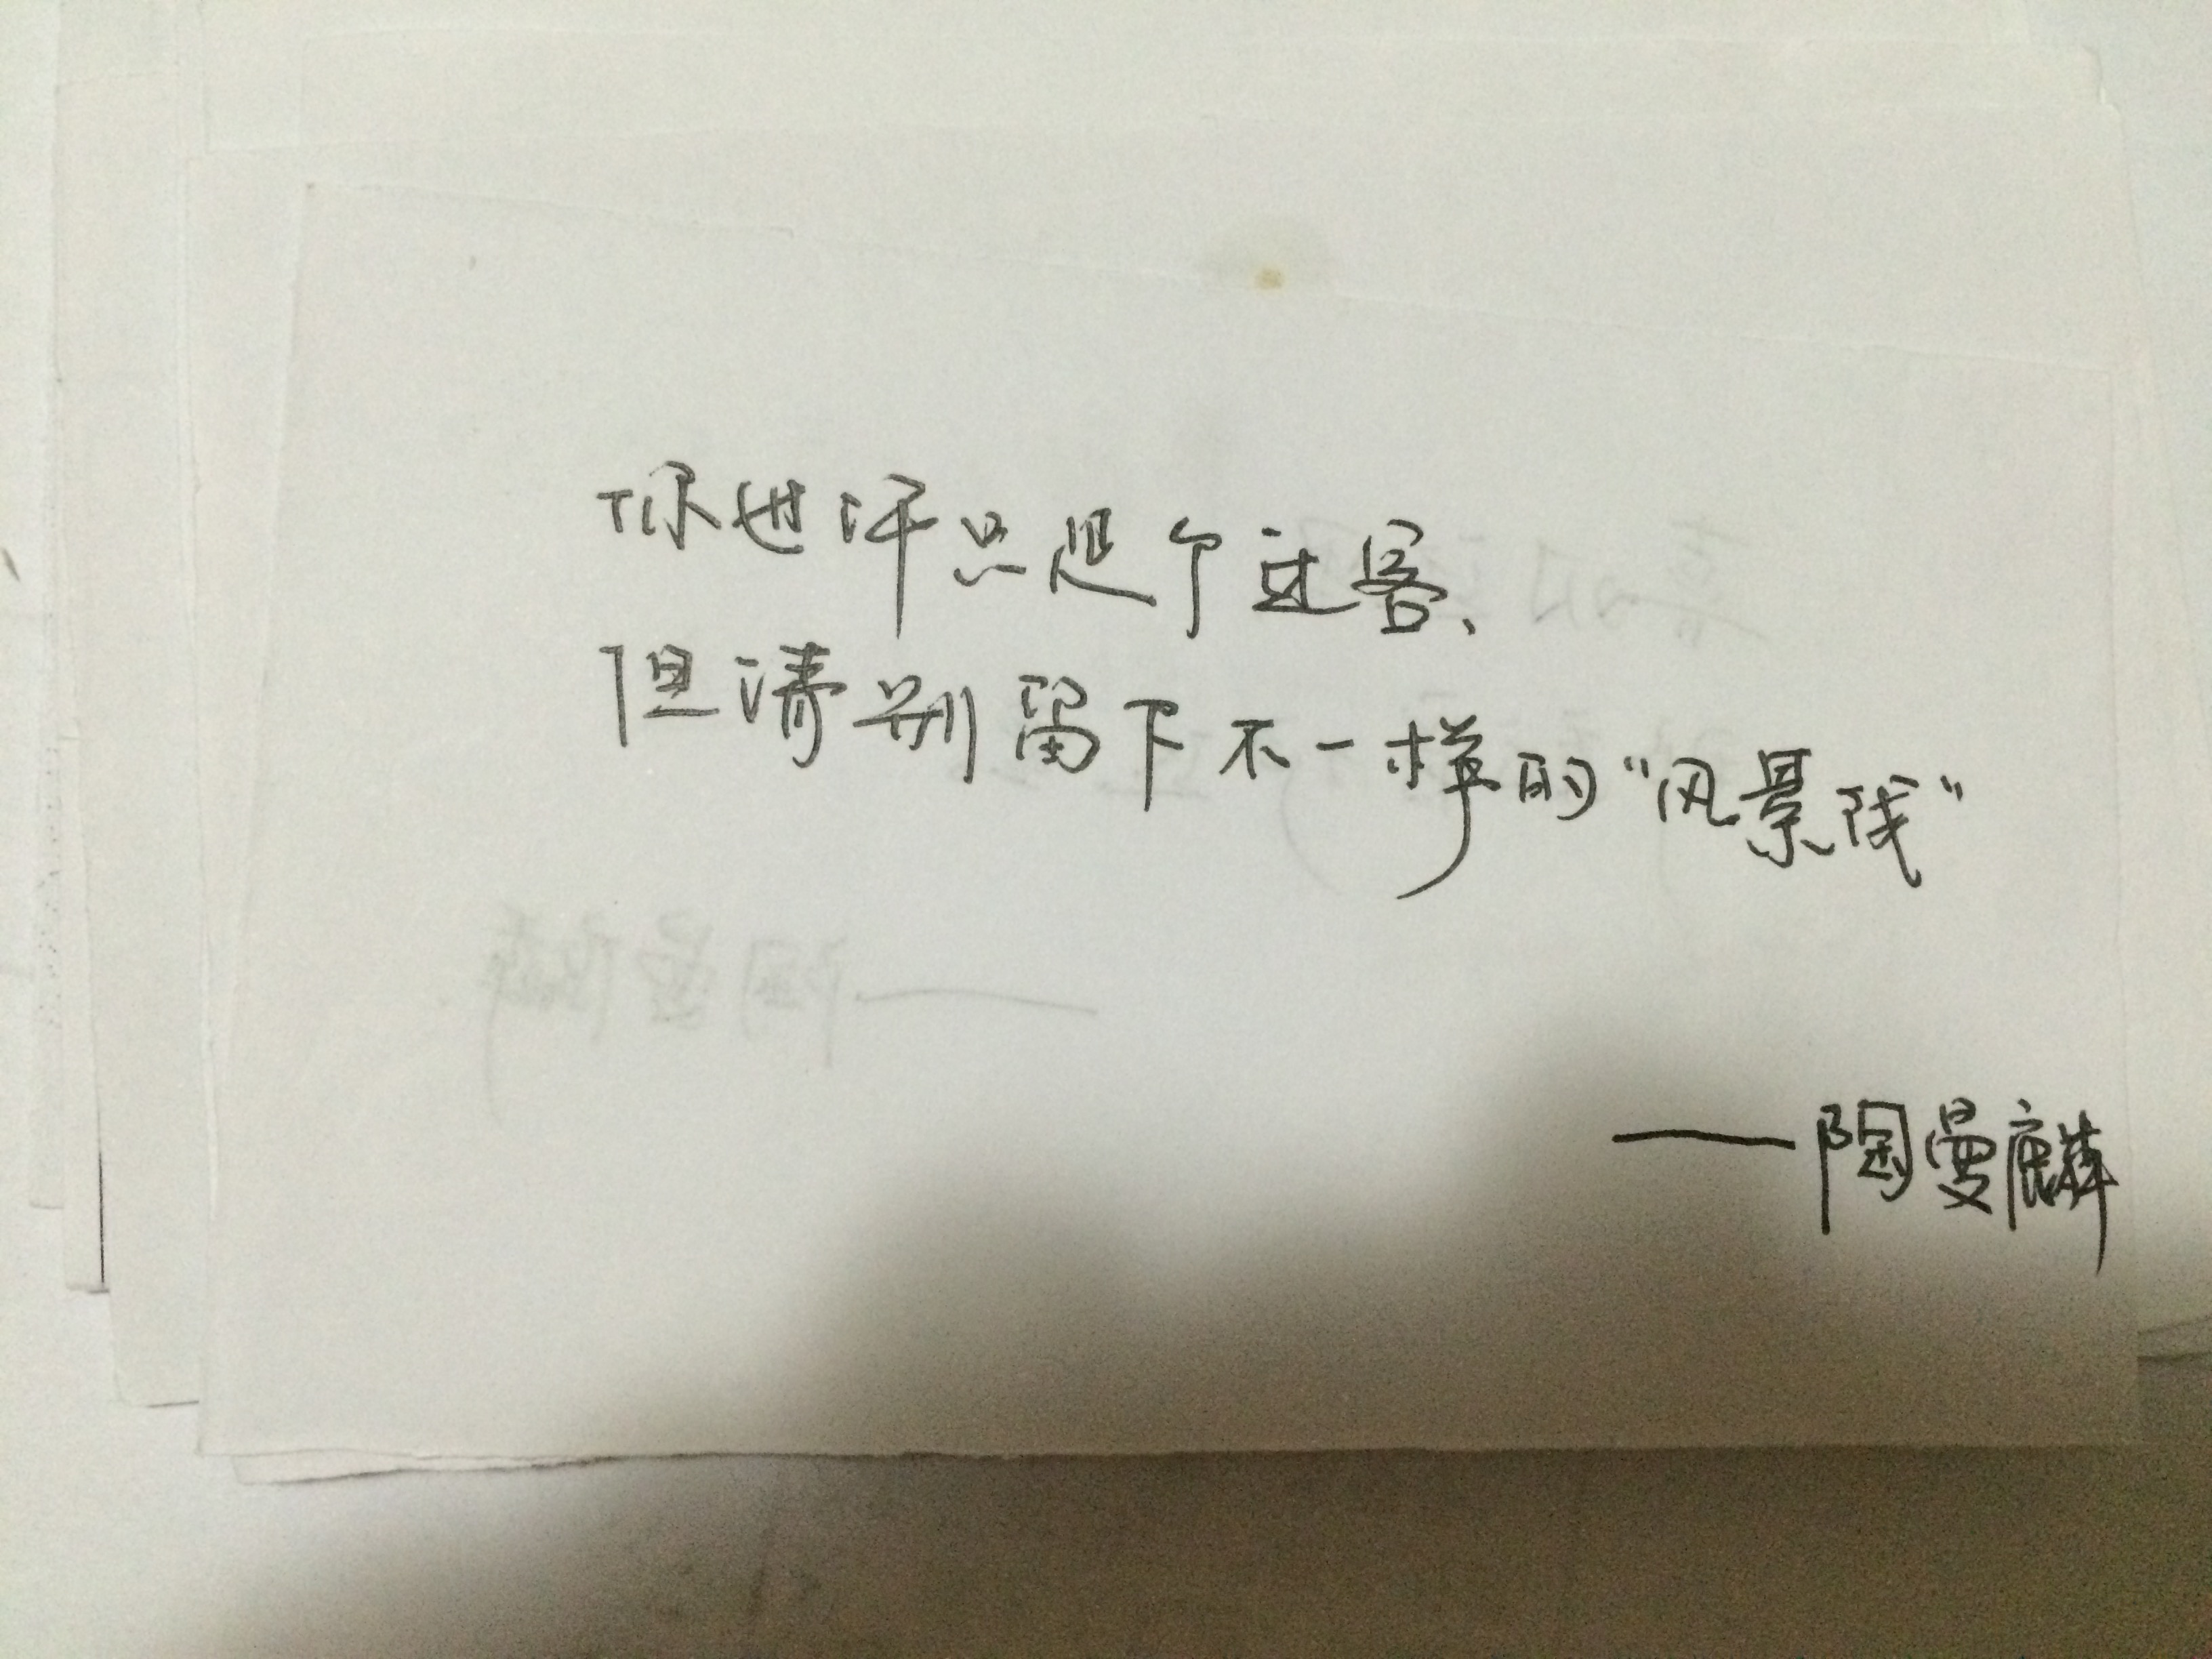 你也许只是个过客、
但请别留下不一样的“风景线”
——陶曼麟